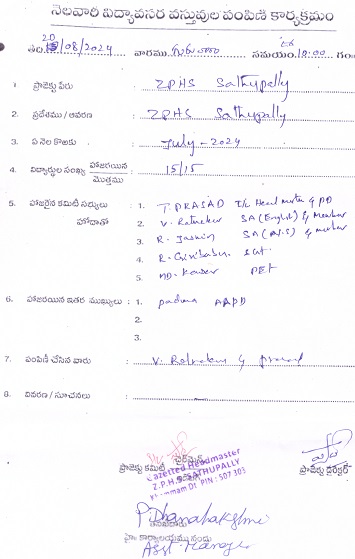 నెలవారీ విద్యావసర వస్తువుల పంపిణి కార్యక్రమం
తేది. /08/2024 వారము. గురువారం సమయం. 10:00 గం
1 ప్రాజెక్టు పేరు : ZPHS Sathupally
2. ప్రదేశము / ఆవరణ : ZPHS Sathupally
3. ఏ నెల కొఱకు : July - 2024
4. విద్యార్థుల సంఖ్య హాజరయిన / మొత్తము : 15/15
5. హాజరైన కమిటి సభ్యులు హోదాతో : 1. T. PRASAD I/c Head master & PD
2. V. Ratnakar SA (English) & Member
3. R. Jasmin SA & member
4. R. SGT
5. MD. PET
6. హాజరయిన ఇతర ముఖ్యులు : 1. padma AAPD
2.
3.
7. పంపిణి చేసిన వారు : V. Ratnakar &
8. వివరణ / సూచనలు :
ప్రాజెక్టు కమిటీ ఛైర్మెన్
ప్రాజెక్టు డైరెక్టర్
Gazetted Headmaster
Z.P.H.S. SATHUPALLY
Khammam Dt. PIN : 507 303
P. Dhanalakshmi
హైం కార్యాలయము నందు
Asst Manager